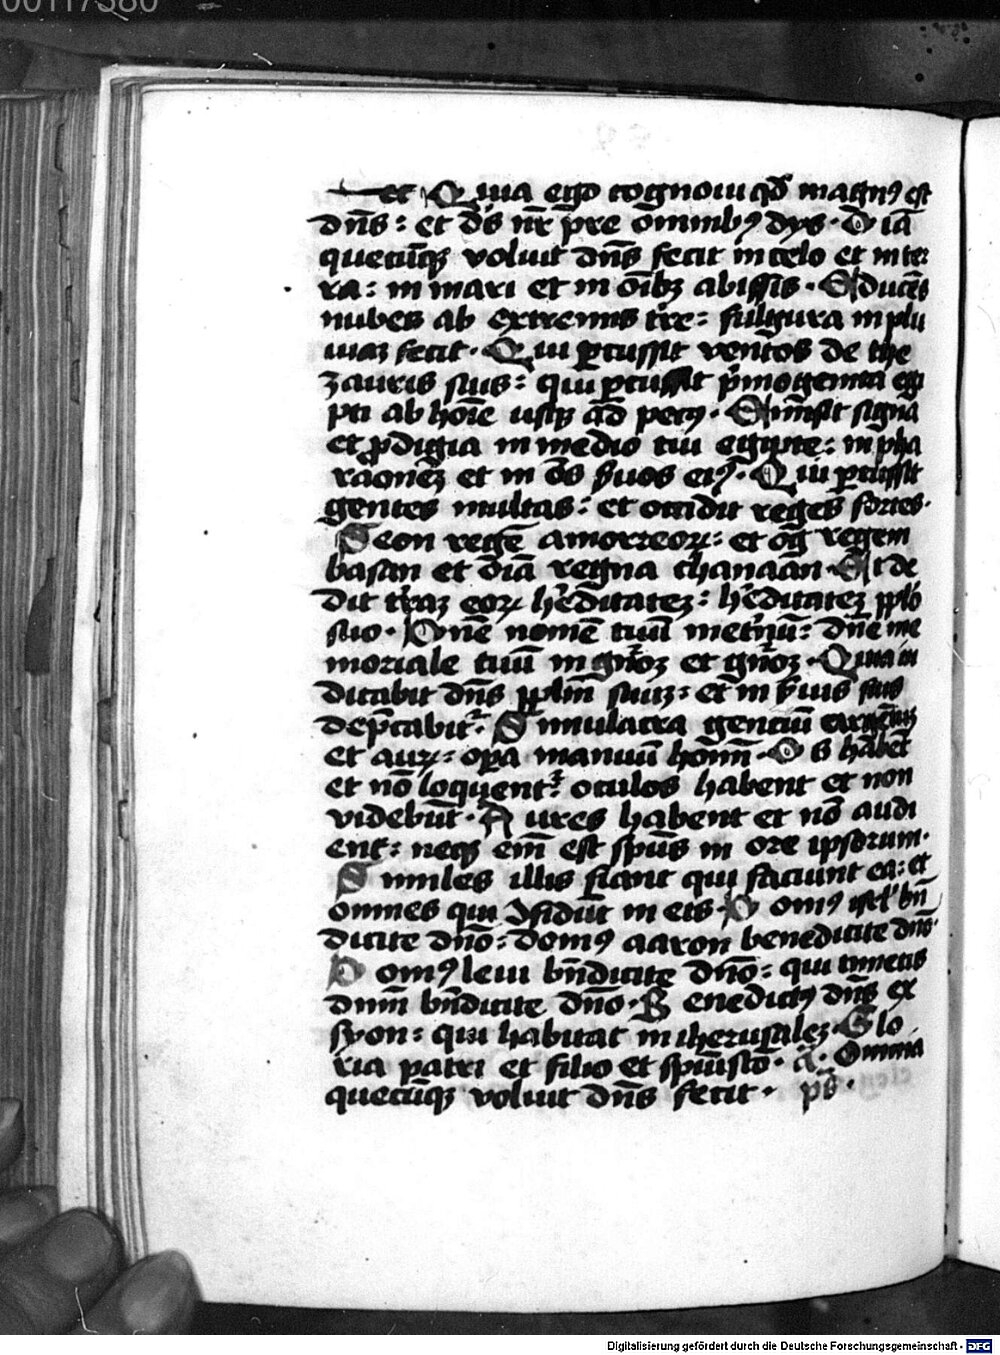 00117380
et Quia ego cognoui qd̄ magnꝰ est
dn̄s : et ds̄ nr̄ pre om̄nibꝫ dys · Om̄ia
quecūqꝫ voluit dn̄s fecit in celo et in ter
ra : in mari et in oībꝫ abissis · Educēs
nubes ab extremis tr̄e : fulgura in plu
uiaꝫ fecit · Qui ꝓduxit ventos de the
zauris suis : qui ꝑcussit pͥmogenita egi
pti ab hoīe usqꝫ ad pecꝰ · Et misit signa
et ꝓdigia in medio tui egipte : in pha
raonēꝫ et in oēs ẜuos eiꝰ · Qui ꝑcussit
gentes multas : et occidit reges fortes ·
Seon regē amorreoꝝ : et og regem
basan et oīa regna chanaan · Et de
dit terraꝫ eoꝝ hereditateꝫ : hereditateꝫ pplo
suo · Dn̄e nomē tuū in et̄nū : dn̄e me
moriale tuū in gn̄oꝫ et gn̄oꝫ · Quia iu
dicabit dn̄s pplm̄ suuꝫ : et in ẜuis suis
dep̄cabitᷣ · Simulacra gentiū argentuꝫ
et auꝝ : oꝑa manuū hoīm · Os habēt
et nō loquentᷣ : oculos habent et non
videbūt · Aures habent et nō audi
ent : neqꝫ em̄ est spūs in ore ipsorum ·
Similes illis fiant qui faciunt ea : et
omnes qui ꝯfidūt in eis · Domꝰ isrl̄ bn̄
dicite dn̄o : domꝰ aaron benedicite dn̄o ·
Domꝰ leui bn̄dicite dn̄o : qui timetis
dnm̄ bn̄dicite dn̄o · Benedictꝰ dn̄s ex
syon : qui habitat in iherusaleꝫ · Glo
ria patri et filio et spūi sc̄o · a · Omnia
quecūqꝫ voluit dn̄s fecit · pš ·
Digitalisierung gefördert durch die Deutsche Forschungsgemeinschaft - DFG